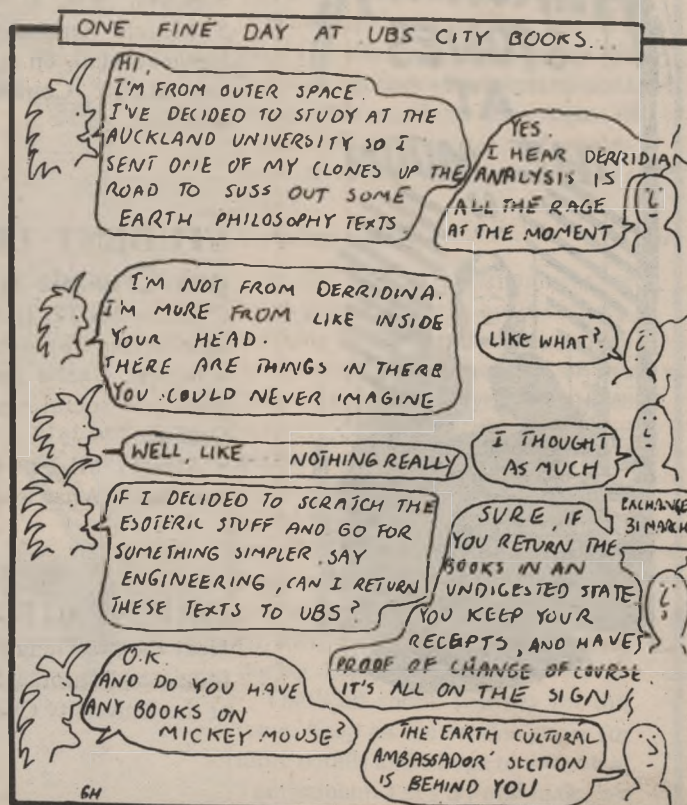 ONE FINE DAY AT UBS CITY BOOKS...
HI,
I'M FROM OUTER SPACE.
I'VE DECIDED TO STUDY AT THE
AUCKLAND UNIVERSITY SO I
SENT ONE OF MY CLONES UP THE
ROAD TO SUSS OUT SOME
EARTH PHILOSOPHY TEXTS.
YES.
I HEAR DERRIDIAN
ANALYSIS IS
ALL THE RAGE
AT THE MOMENT
I'M NOT FROM DERRIDINA.
I'M MORE FROM LIKE INSIDE
YOUR HEAD.
THERE ARE THINGS IN THERE
YOU COULD NEVER IMAGINE
LIKE WHAT?
WELL, LIKE .... NOTHING REALLY
I THOUGHT
AS MUCH
IF I DECIDED TO SCRATCH THE
ESOTERIC STUFF AND GO FOR
SOMETHING SIMPLER, SAY
ENGINEERING, CAN I RETURN
THESE TEXTS TO UBS?
EXCHANGE
31 MARCH
SURE, IF
YOU RETURN THE
BOOKS IN AN
UNDIGESTED STATE
YOU KEEP YOUR
RECEIPTS, AND HAVE
PROOF OF CHANGE OF COURSE.
IT'S ALL ON THE SIGN
O.K.
AND DO YOU HAVE
ANY BOOKS ON
MICKEY MOUSE?
THE 'EARTH CULTURAL
AMBASSADOR' SECTION
IS BEHIND YOU
GH